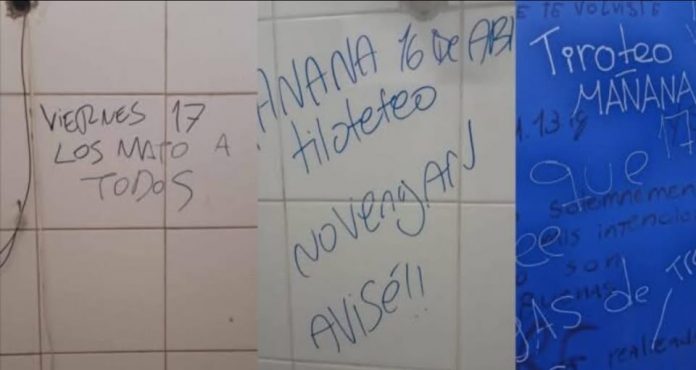 VIERNES 17
LOS MATO A
TODOS
MAÑANA 16 DE ABI
tiloteteo
NO VENGAN
AVISÉ!!
E TE VOLVISTE
TiroTEO
MAÑANA
1.13
que 17
SOLEMNEMEN
intencio
SON
GAS de Tr
realidad